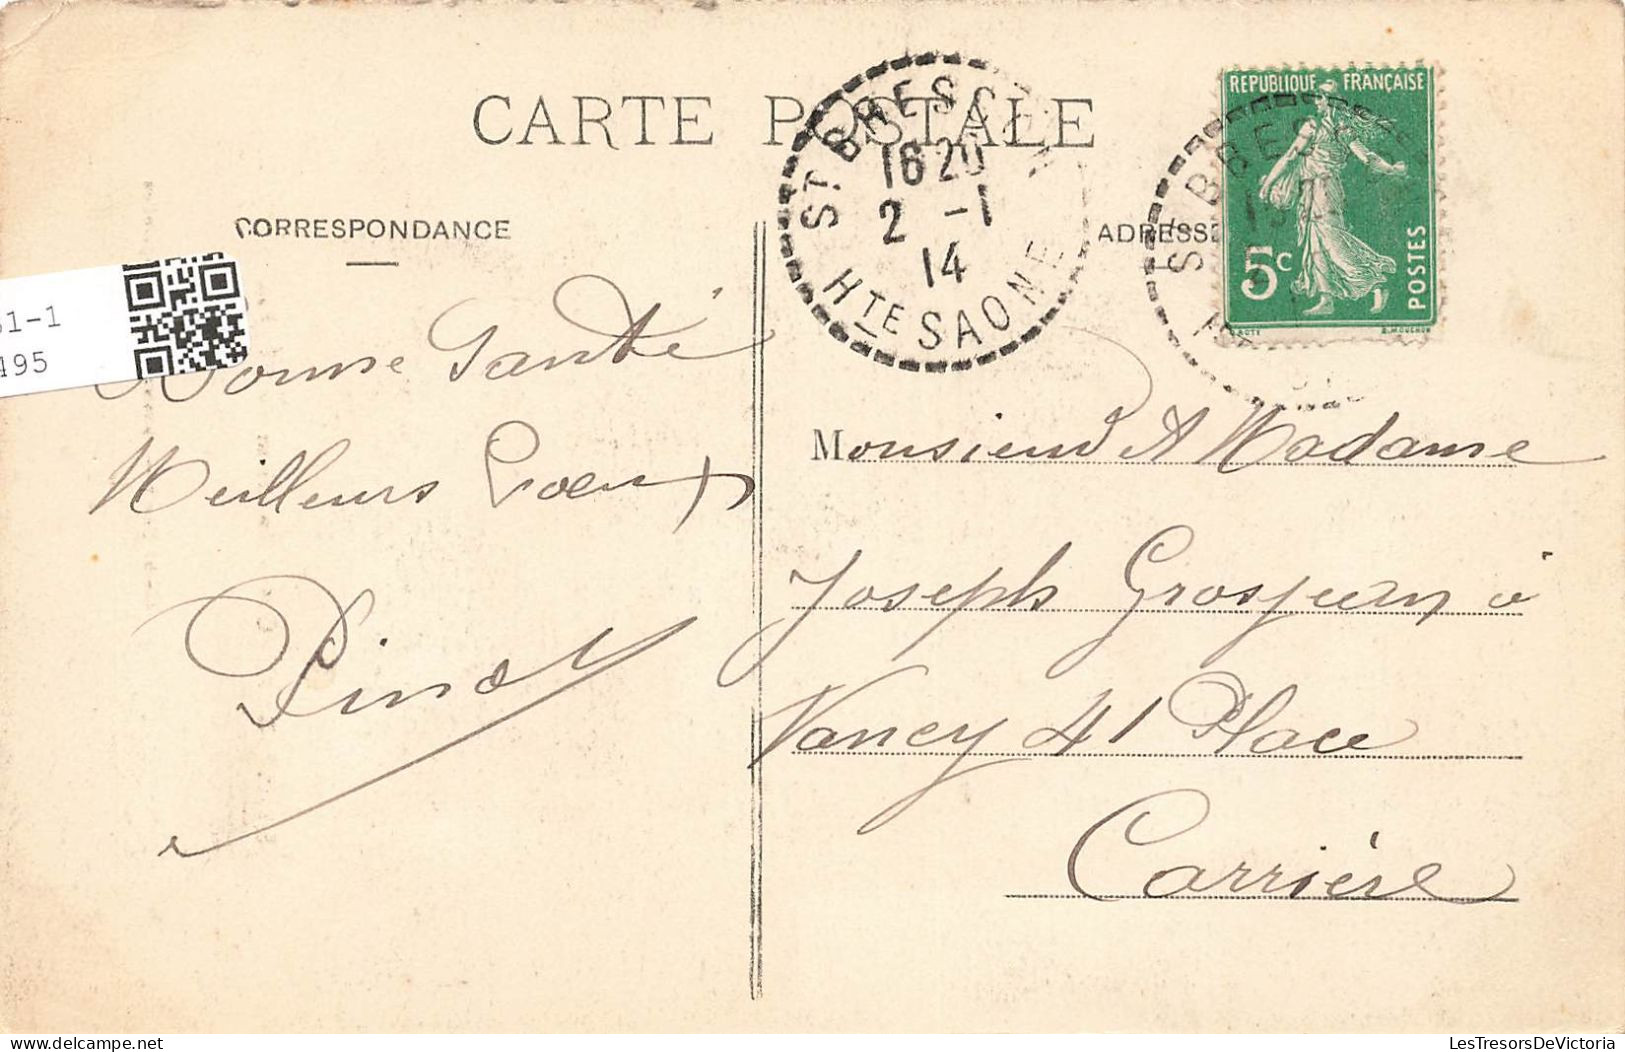 CARTE POSTALE
ST BRESSON
16 20
2 -1
14
HTE SAONE
REPUBLIQUE FRANÇAISE
5c
POSTES
CORRESPONDANCE
ADRESSE
51-1
495
Bonne Santé
Meilleurs Voeux
Monsieur et Madame
Joseph Grosjean à
Nancy 41 Place
Carrière
LesTresorsDeVictoria